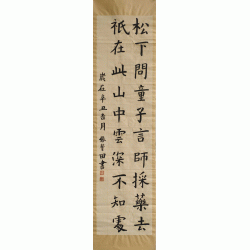 松下問童子言師採藥去
祇在此山中雲深不知處
歲在辛丑
月
書